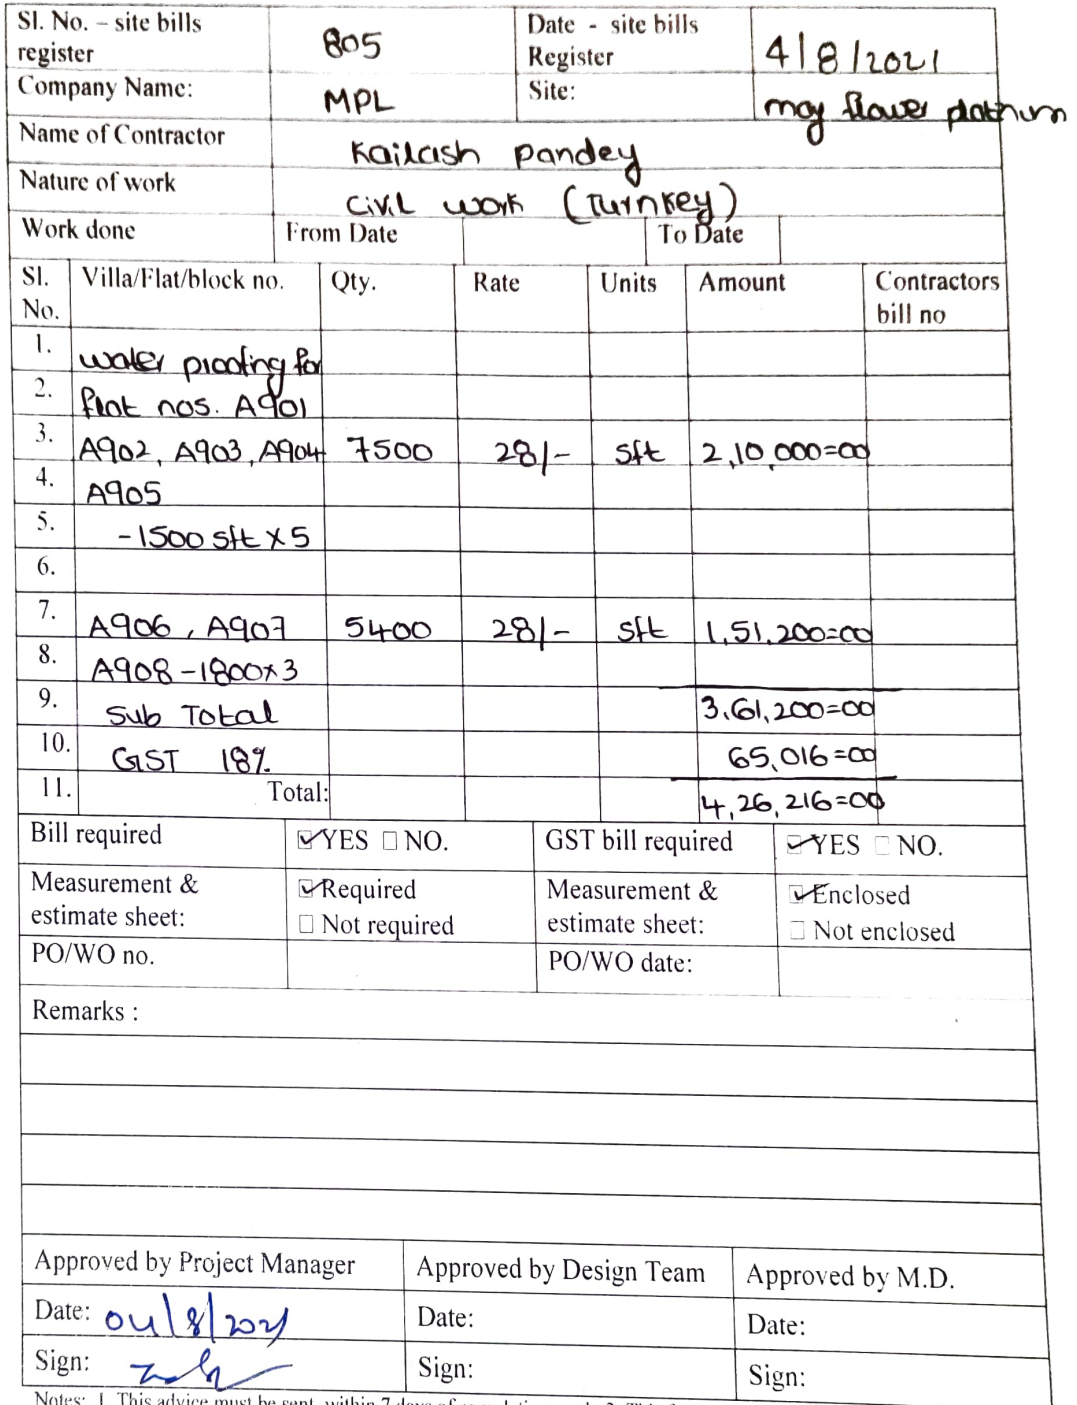 Sl. No. – site bills register 805 Date - site bills Register 4/8/2021
Company Name: MPL Site: may flower platinum
Name of Contractor Kailash Pandey
Nature of work civil work (Turnkey)
Work done From Date To Date
Sl. No. Villa/Flat/block no. Qty. Rate Units Amount Contractors bill no
1. water proofing for
2. flat nos. A901
3. A902, A903, A904 7500 28/- sft 2,10,000=00
4. A905
5. -1500 sft x 5
6.
7. A906, A907 5400 28/- sft 1,51,200=00
8. A908 - 1800x3
9. Sub Total 3,61,200=00
10. GST 18% 65,016=00
11. Total: 4,26,216=00
Bill required ☑YES ☐ NO. GST bill required ☑YES ☐ NO.
Measurement & estimate sheet: ☑Required ☐ Not required Measurement & estimate sheet: ☑Enclosed ☐ Not enclosed
PO/WO no. PO/WO date:
Remarks :
Approved by Project Manager Approved by Design Team Approved by M.D.
Date: 04/8/2021 Date: Date:
Sign: Sign: Sign:
Notes: 1. This advice must be sent within 7 days of